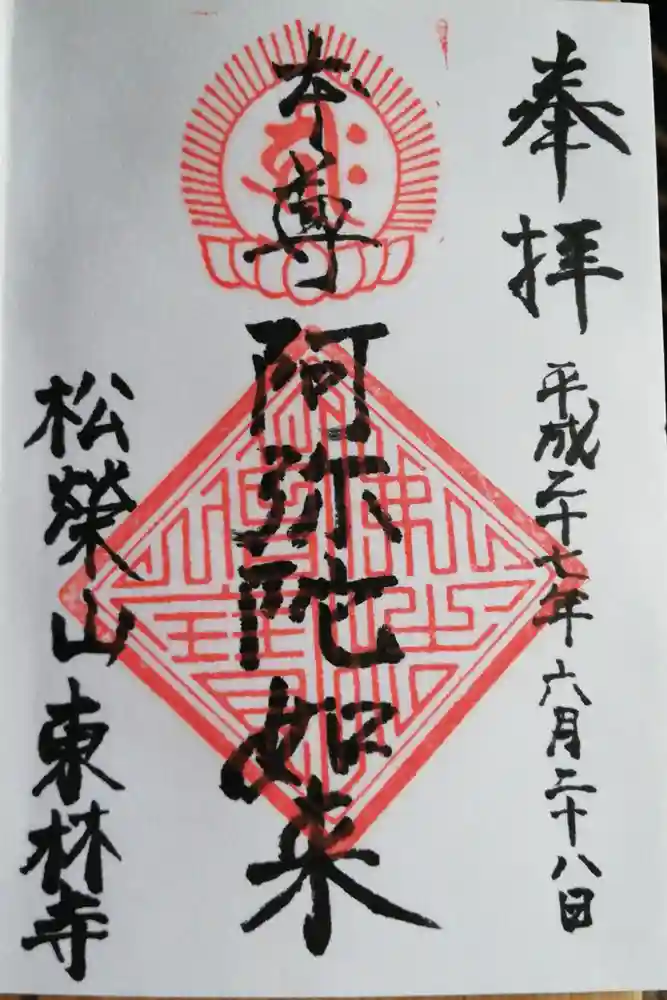 奉拝
平成二十七年六月二十八日
本尊
阿弥陀如来
松榮山
東林寺